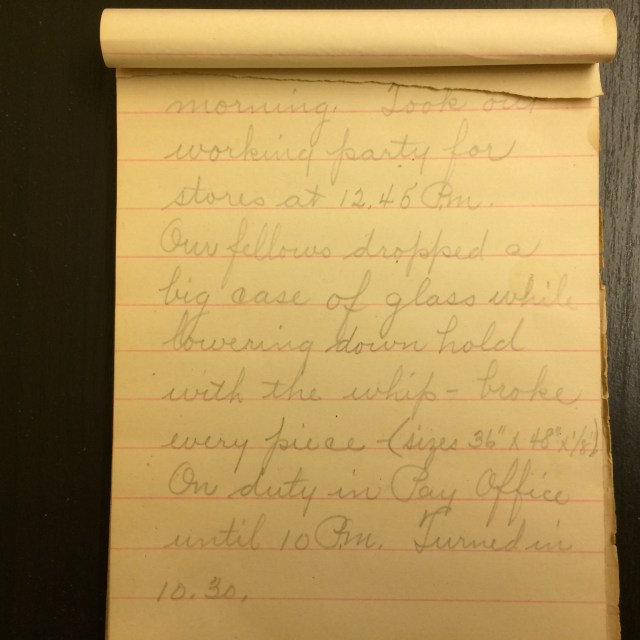 morning. Took out
working party for
stores at 12.45 P.m.
Our fellows dropped a
big case of glass while
lowering down hold
with the whip - broke
every piece - (sizes 36" x 48" x 1/8")
On duty in Pay Office
until 10 P.m. Turned in
10.30.